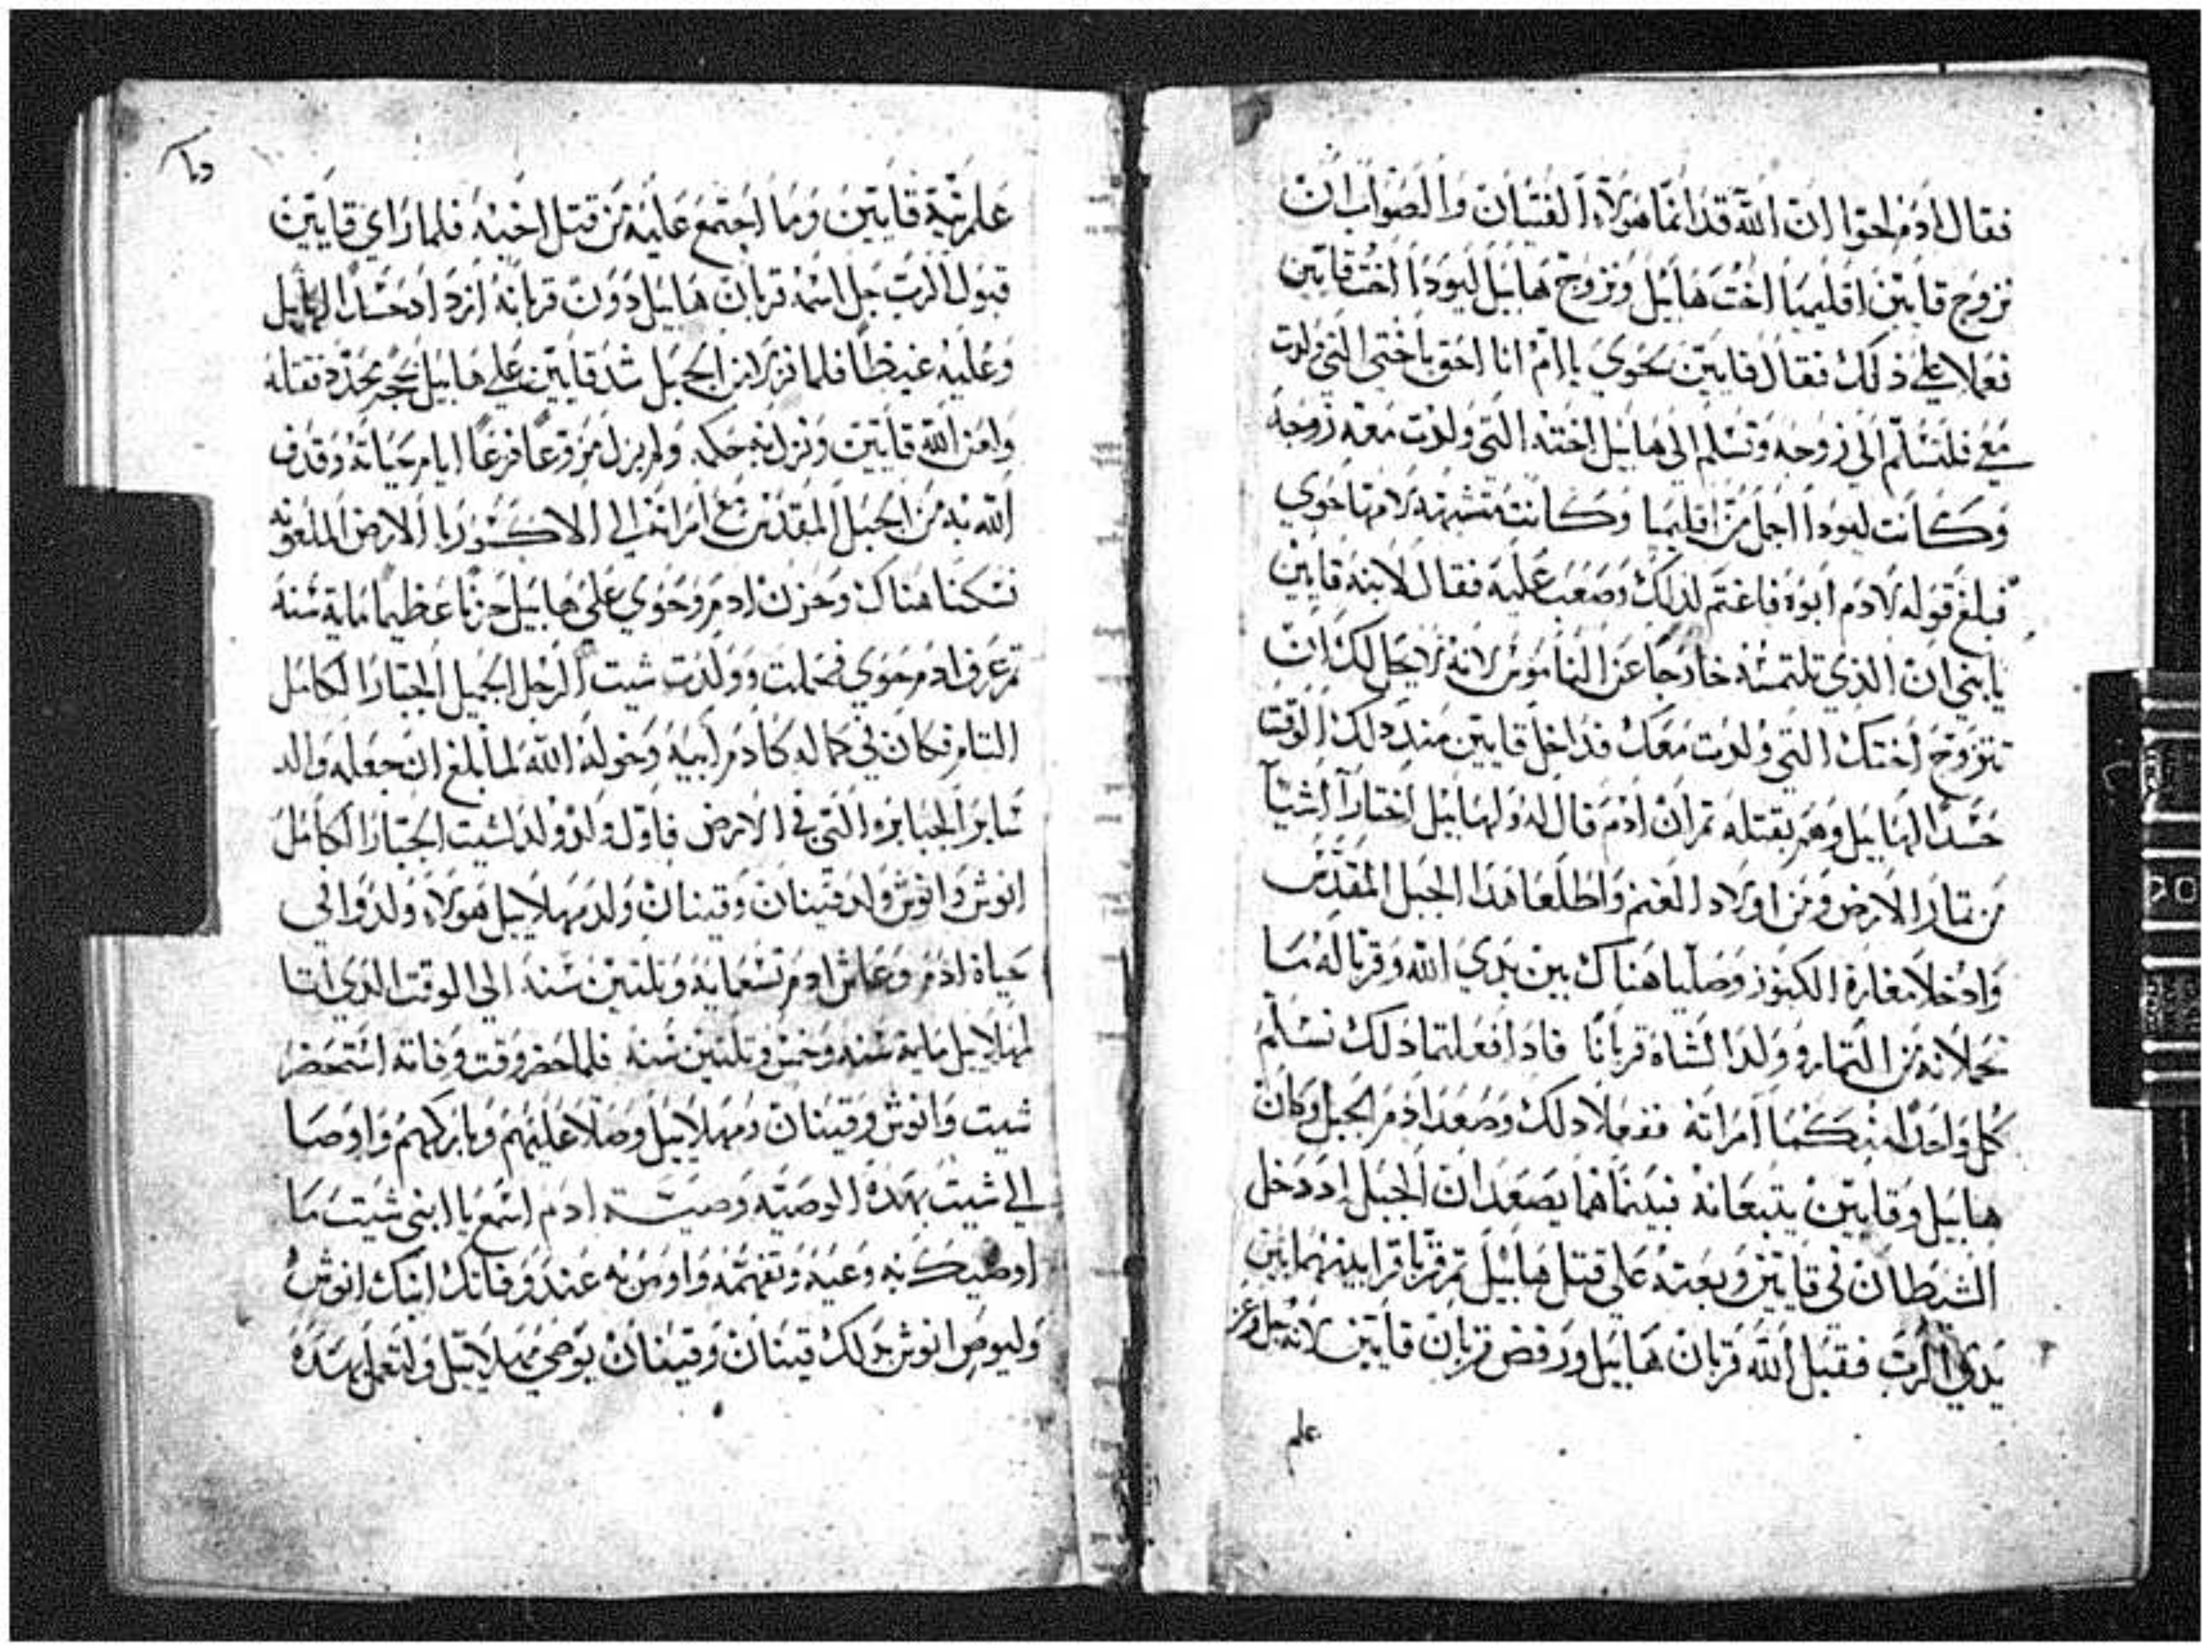 فقال ادم لحوا ان الله قد انما هولاء الفتيان والصواب ان
نزوج قايين اقليميا اخت هابيل ونزوج هابيل ليودا اخت قايين
فعملا علي ذلك فقال قايين لحوي يا امَ انا احق باختي التي ولدت
معي فلتسلم الي زوجه وتسلم الي هابيل اخته التي ولدت معه زوجه
وكانت ليودا اجمل من اقليميا وكانت مشبهه لامها حوي
فبلغ قوله لادم ابوه فاغتم لدلك وصعب عليه فقال لابنه قايين
يا بني ان الذي تلتمسه خارجا عن الناموس لانه لا يحل لك ان
تتزوج اختك التي ولدت معك فداخل قايين مند دلك الوقت
حسدًا لهابيل وهم بقتله تم ان ادم قال له ولهابيل اختارا شيا
من تمار الارض ومن اولاد الغنم واطلعا هدا الجبل المقدس
وادخلا مغارة الكنوز وصليا هناك بين يدي الله وقربا له ما
تحملانه من التمار وولد الشاه قربانًا فادا فعلتما دلك تسلم
كل واحدًا منكما امراته ففعلا دلك وصعد ادم الجبل وكان
هابيل وقايين يتبعانه فبينما هما يصعدان الجبل اد دخل
الشيطان في قايين وبعته علي قتل هابيل تم قربا قرابينهما بين
يدي الرب فقبل الله قربان هابيل ورفض قربان قايين لانه جل وعز
علم
علم نية قايين وما اجتمع عليه من قتل اخيه فلما راي قايين
قبول الرب جل اسمه قربان هابيل دون قربانه ازداد حسدًا لهابيل
وعليه غيظًا فلما نزلا من الجبل شد قايين علي هابيل بحجر محدد فقتله
ولعن الله قايين ونزل به حكمه ولم يزل مزوعًا فزعًا ايام حياته وقدف
الله به من الجبل المقدس مع امراته الي الارض الملعونه
فسكنا هناك وحزن ادم وحوي علي هابيل حزنًا عظيما ماية سنه
تم عرف ادم حوي فحملت وولدت شيت الرجل الجميل الجبار الكامل
التام فكان في كماله كادم ابيه وخوله الله لما بلغ ان جعله والد
ساير الجبابره التي في الارض فاول ولد ولد لشيت الجبار الكامل
انوش وانوش ولد قينان وقينان ولد مهلاييل هولاء ولدوا في
حياة ادم وعاش ادم تسعمايه وتلتين سنه الي الوقت الدي اتا
لمهلاييل مايه سنه وخمس وتلتين سنه فلما حضر وقت وفاته استحضر
شيت وانوش وقينان ومهلاييل وصلا عليهم وباركهم واوصا
الي شيت بهده الوصيه وصية ادم اسمع يا ابني شيت ما
اوصيك به وعيه وتفهمه واوص به عند وفاتك ابنك انوش
وليوص انوش بدلك قينان وقينان يوصي مهلاييل ولتعمل بهده